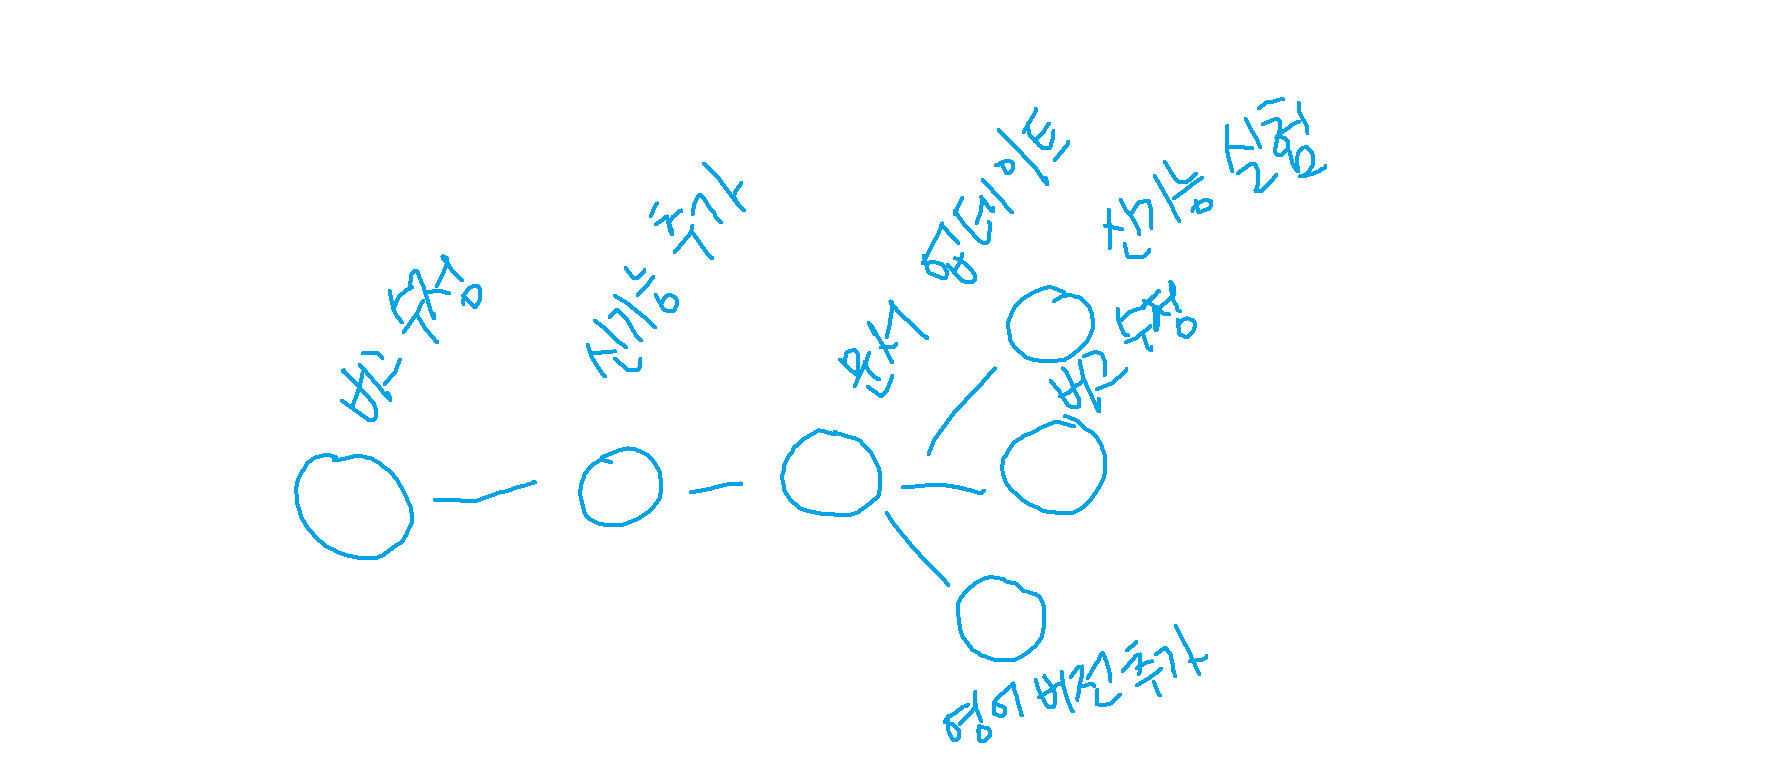 버그 수정
신기능 추가
문서 업데이트
신기능 실험
버그 수정
영어 버전 추가